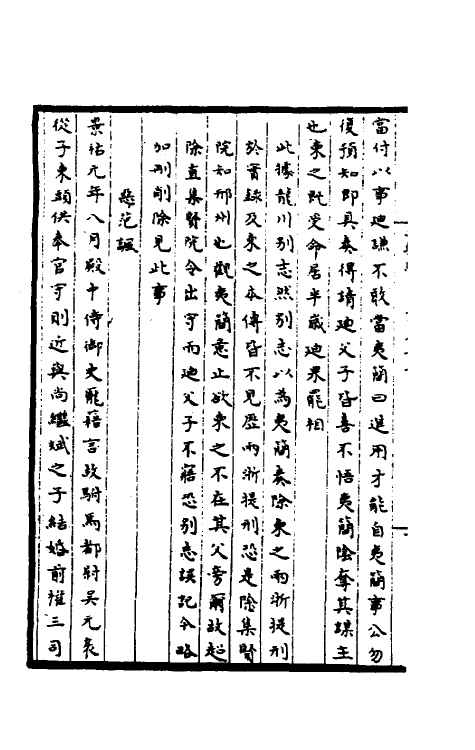 當付以事迪謙不敢當夷簡曰進用才能自夷簡事公勿
復預知即具奏得請迪父子皆喜不悟夷簡陰奪其謀主
也柬之既受命居半歲迪果罷相
此據龍川別志然別志以為夷簡奏除柬之兩浙提刑
於實錄及柬之本傳皆不見歷兩浙提刑恐是除集賢
院知邢州也觀夷簡意止欲柬之不在其父旁爾故超
除直集賢院令出守而迪父子不寤恐別志誤記今略
加刑削除見此事
范諷
景祐元年八月殿中侍御史龐籍言故駙馬都尉吳元扆
從子東頭供奉官守則近與尚繼斌之子結婚前權三司